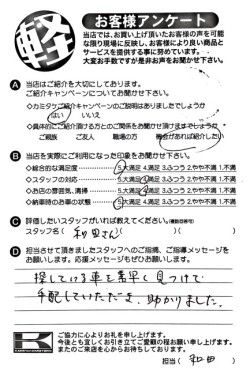 軽
お客様アンケート
当店では、お買い上げ頂いたお客様の声を可能
な限り現場に反映し、お客様により良い商品と
サービスを提供する事に努めています。
大変お手数ですが是非お声をお聞かせ下さい。
A 当店はご紹介を大切にしております。
ご紹介キャンペーンについてお聞かせ下さい。
◇カミタケご紹介キャンペーンのご説明はありましたでしょうか
はい いいえ
◇具体的にご紹介頂ける方とのご関係をお聞かせ頂けますでしょうか
ご親族 ご友人 職場の方 機会があれば紹介したい
B 当店を実際にご利用になった印象をお聞かせ下さい。
◇総合的な満足度 5.大満足 4.満足 3.ふつう 2.やや不満 1.不満
◇スタッフの対応 5.大満足 4.満足 3.ふつう 2.やや不満 1.不満
◇お店の雰囲気、清掃 5.大満足 4.満足 3.ふつう 2.やや不満 1.不満
◇納車時のお車の状態 5.大満足 4.満足 3.ふつう 2.やや不満 1.不満
C 評価したいスタッフがいれば教えてください。(複数回答可)
スタッフ名( 和田さん )( )
D 担当させて頂きましたスタッフへのご指摘、ご指導メッセージを
お願いします。応援メッセージもぜひお願いします。
探している車を素早く見つけて
手配していただき、助かりました。
K
ご協力に心よりお礼を申し上げます。
今後とも宜しくお引き立てご愛顧の程お願い申し上げます。
またのご来店を心からお待ちしております。
担当( 和田 )